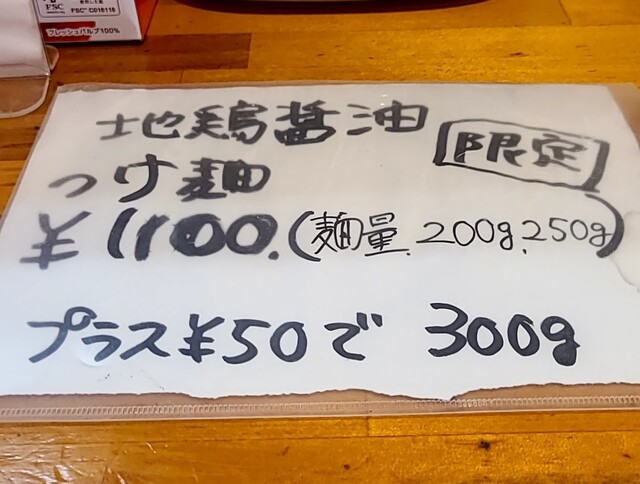 FSC
FSC® C016118
フレッシュパルプ100%
地鶏醤油
限定
つけ麺
¥1100.(麺量.200g.250g)
プラス¥50で 300g